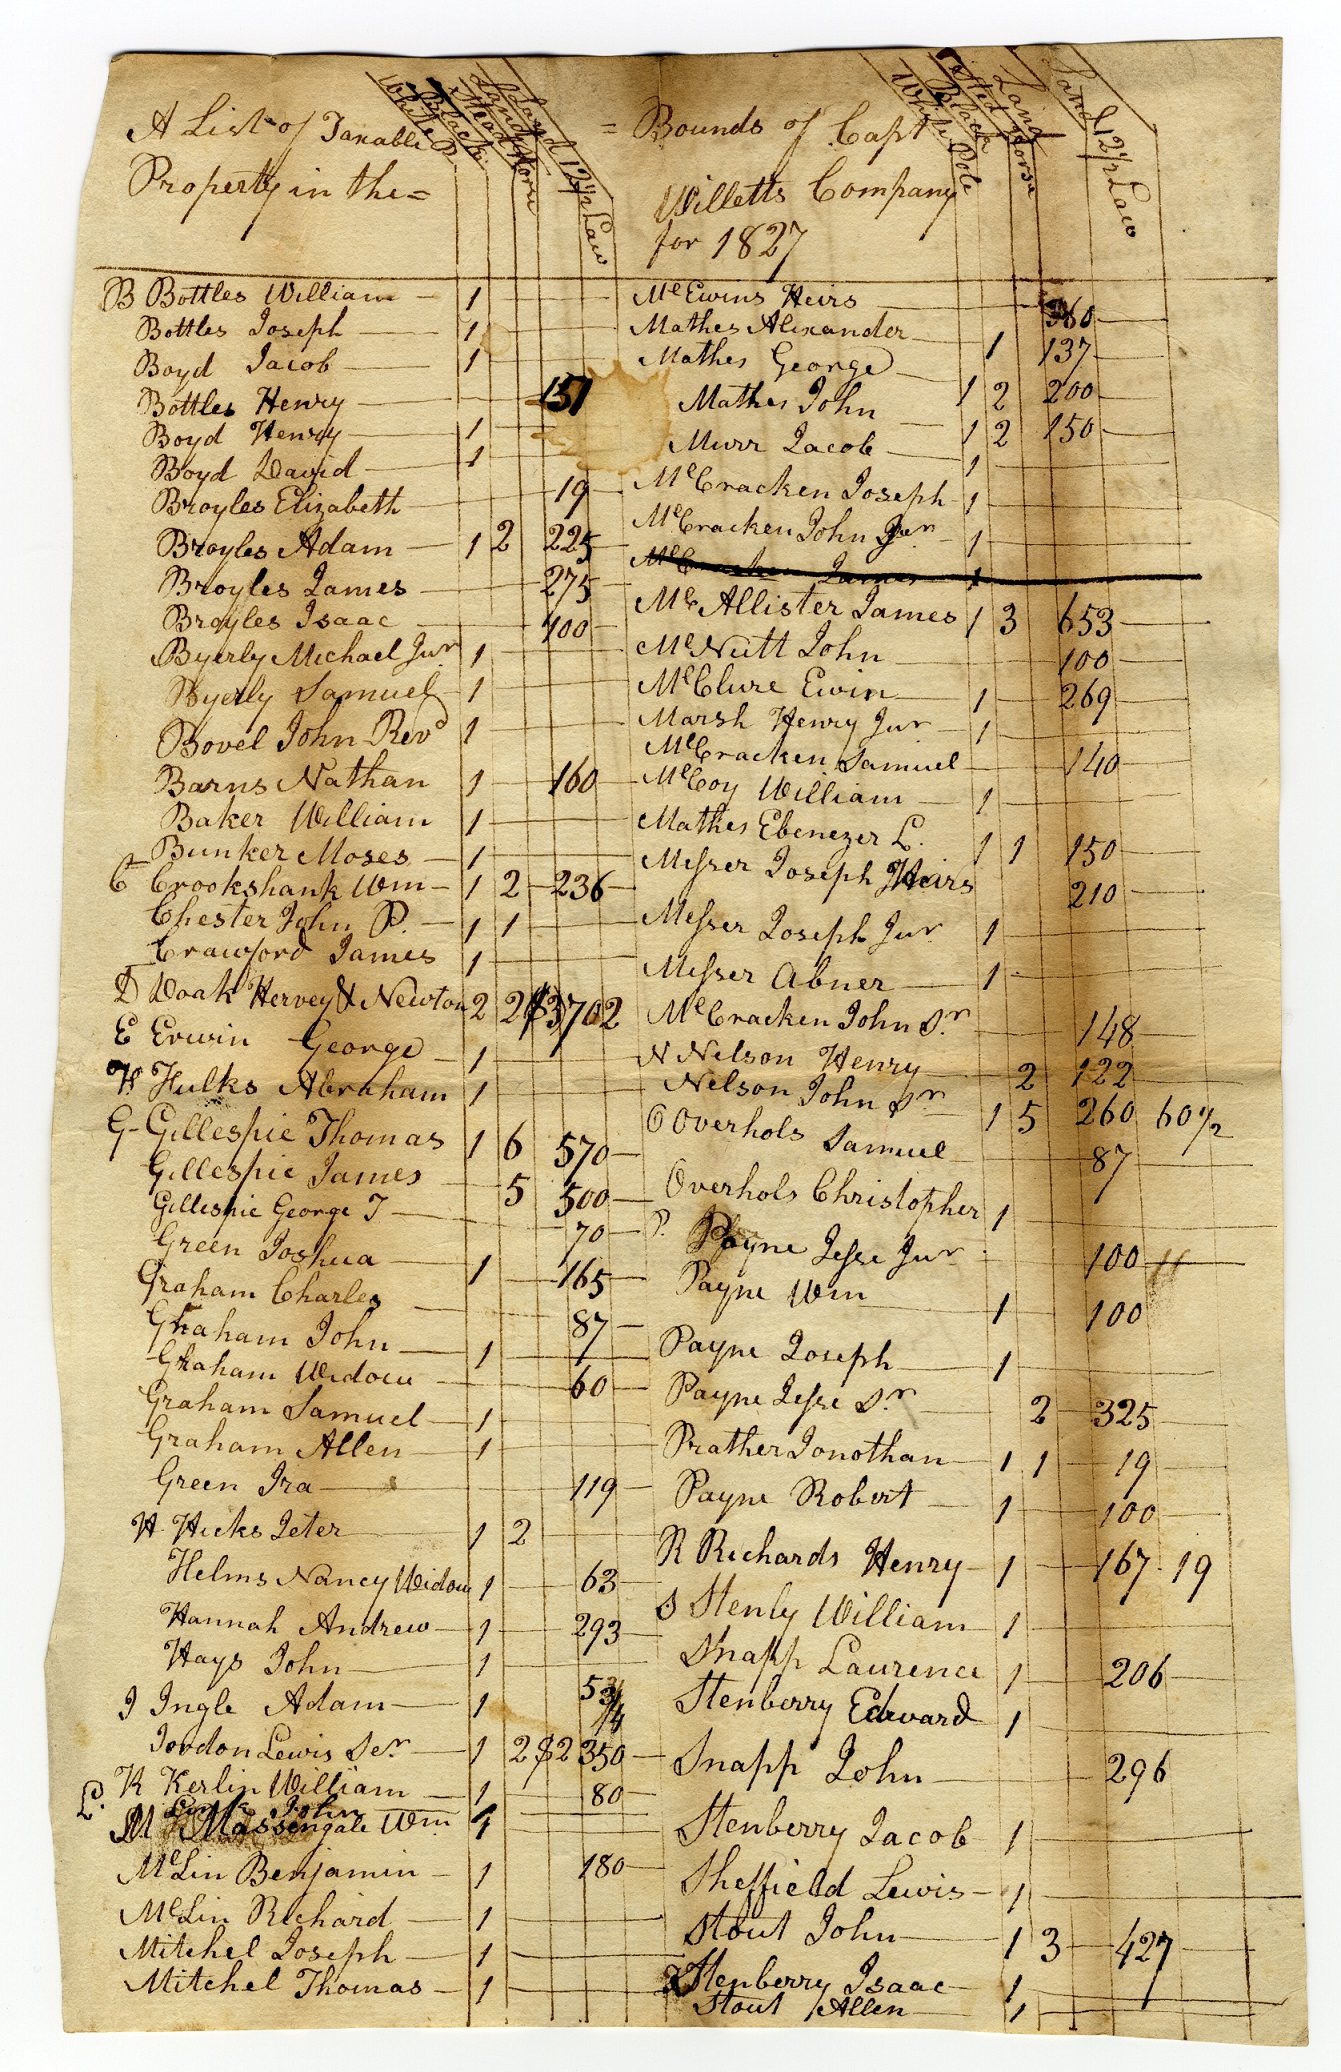 A List of Taxable
Property in the =
White P.
Black
Stead Horse
Land
Land 12½ Law
B Bottles William 1
Bottles Joseph 1
Boyd Jacob 1
Bottles Henry 151
Boyd Henry 1
Boyd David 1
Broyles Elizabeth 19
Broyles Adam 1 2 225
Broyles James 275
Broyles Isaac 100
Byerly Michael Jur 1
Byerly Samuel 1
Bovel John Revd 1
Barns Nathan 1 160
Baker William 1
Bunker Moses 1
C Crookshank Wm 1 2 236
Chester John P. 1 1
Crawford James 1
D Doak Hervey & Newton 2 2 $3702
E Erwin George 1
F Fulks Abraham 1
G Gillespie Thomas 1 6 570
Gillespie James 5 500
Gillespie George T 70
Green Joshua 1 165
Graham Charles 87
Graham John 1
Graham Widow 60
Graham Samuel 1
Graham Allen 1
Green Ira 119
H Hicks Jeter 1 2
Helms Nancy Widow 1 63
Hannah Andrew 1 293
Hays John 1
I Ingle Adam 1 53/4
Jordon Lewis Ser 1 2 $2 350
K Kerlin William 1 80
L. John
M Massengale Wm 1
McLin Benjamin 1 180
McLin Richard 1
Mitchel Joseph 1
Mitchel Thomas 1
= Bounds of Capt
Willetts Company
for 1827
White Pole
Black
Sted Horse
Land
Land 12½ Law
McEwins Heirs 360
Mathes Alexander 1 137
Mathes George 1 2 200
Mathes John 1 2 150
Murr Jacob 1
McCracken Joseph 1
McCracken John Jur 1
McCracken James 1
McAllister James 1 3 653
McNutt John 100
McClure Ewin 1 269
Marsh Henry Jur 1
McCracken Samuel 140
McCoy William 1
Mathes Ebenezer L. 1 1 150
Messer Joseph Heirs 210
Messer Joseph Jur 1
Messer Abner 1
McCracken John Sr 148
N Nelson Henry 2 122
Nelson John Sr 1 5 260 60½
O Overhols Samuel 87
Overhols Christopher 1
P. Payne Jesse Jur 100 11
Payne Wm 1 100
Payne Joseph 1
Payne Jesse Sr 2 325
Prather Jonothan 1 1 19
Payne Robert 1 100
R Richards Henry 1 167 19
S Stenly William 1
Snapp Laurence 1 206
Stenberry Edward 1
Snapp John 296
Stenberry Jacob 1
Sheffield Lewis 1
Stout John 1 3 427
Stenberry Isaac 1
Stout Allen 1